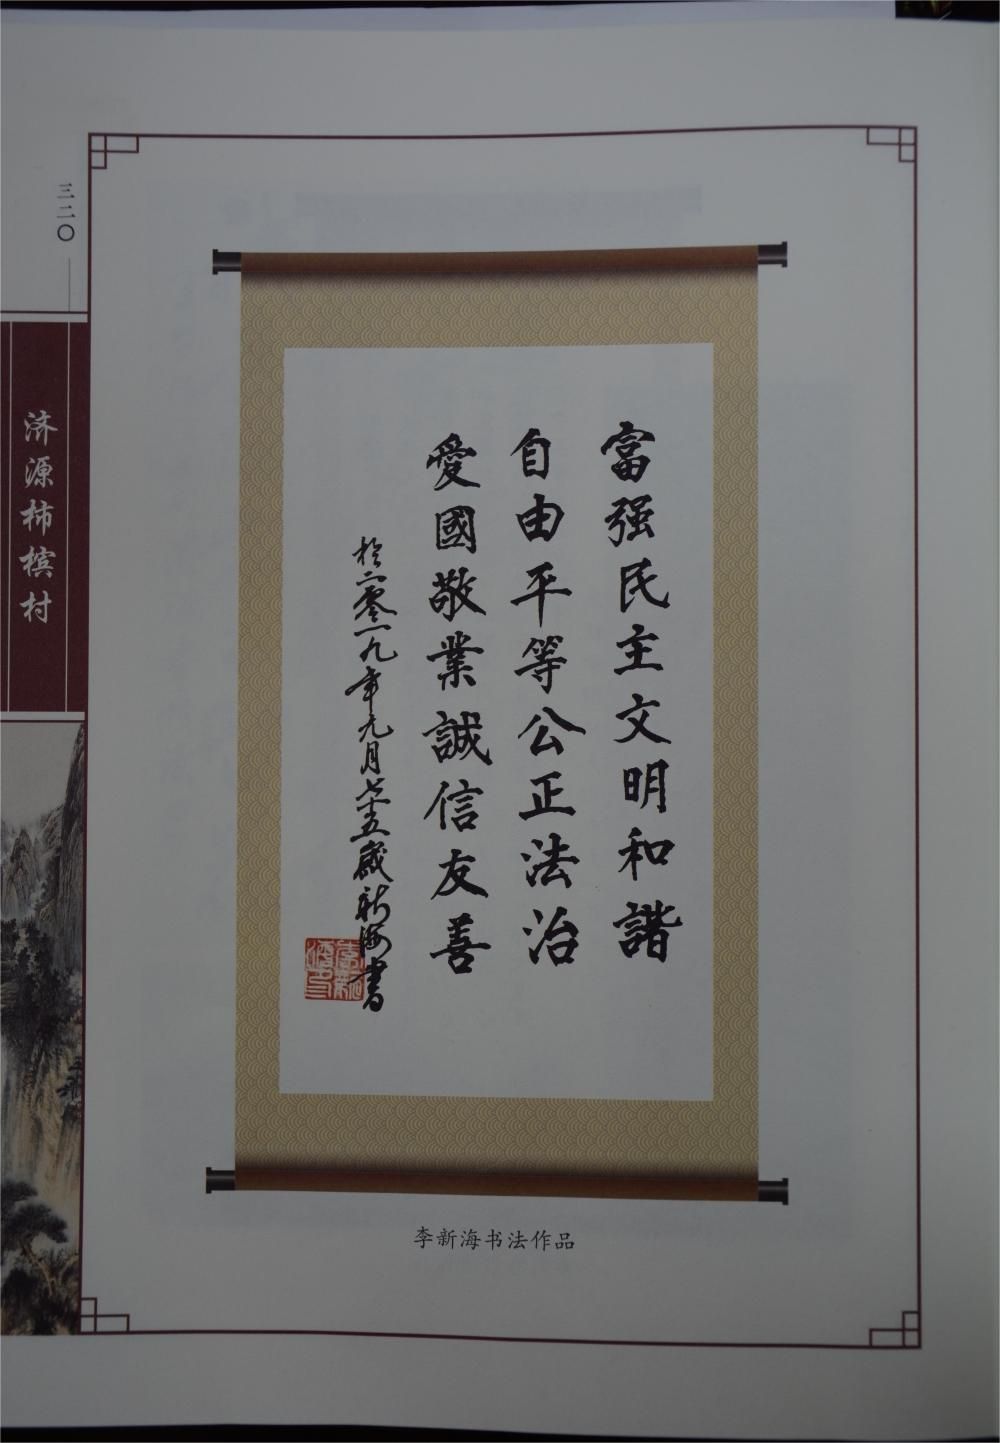 三二〇
济源柿槟村
富强民主文明和諧
自由平等公正法治
愛國敬業誠信友善
於二零一九年九月七十五歲新海书
李新海书法作品